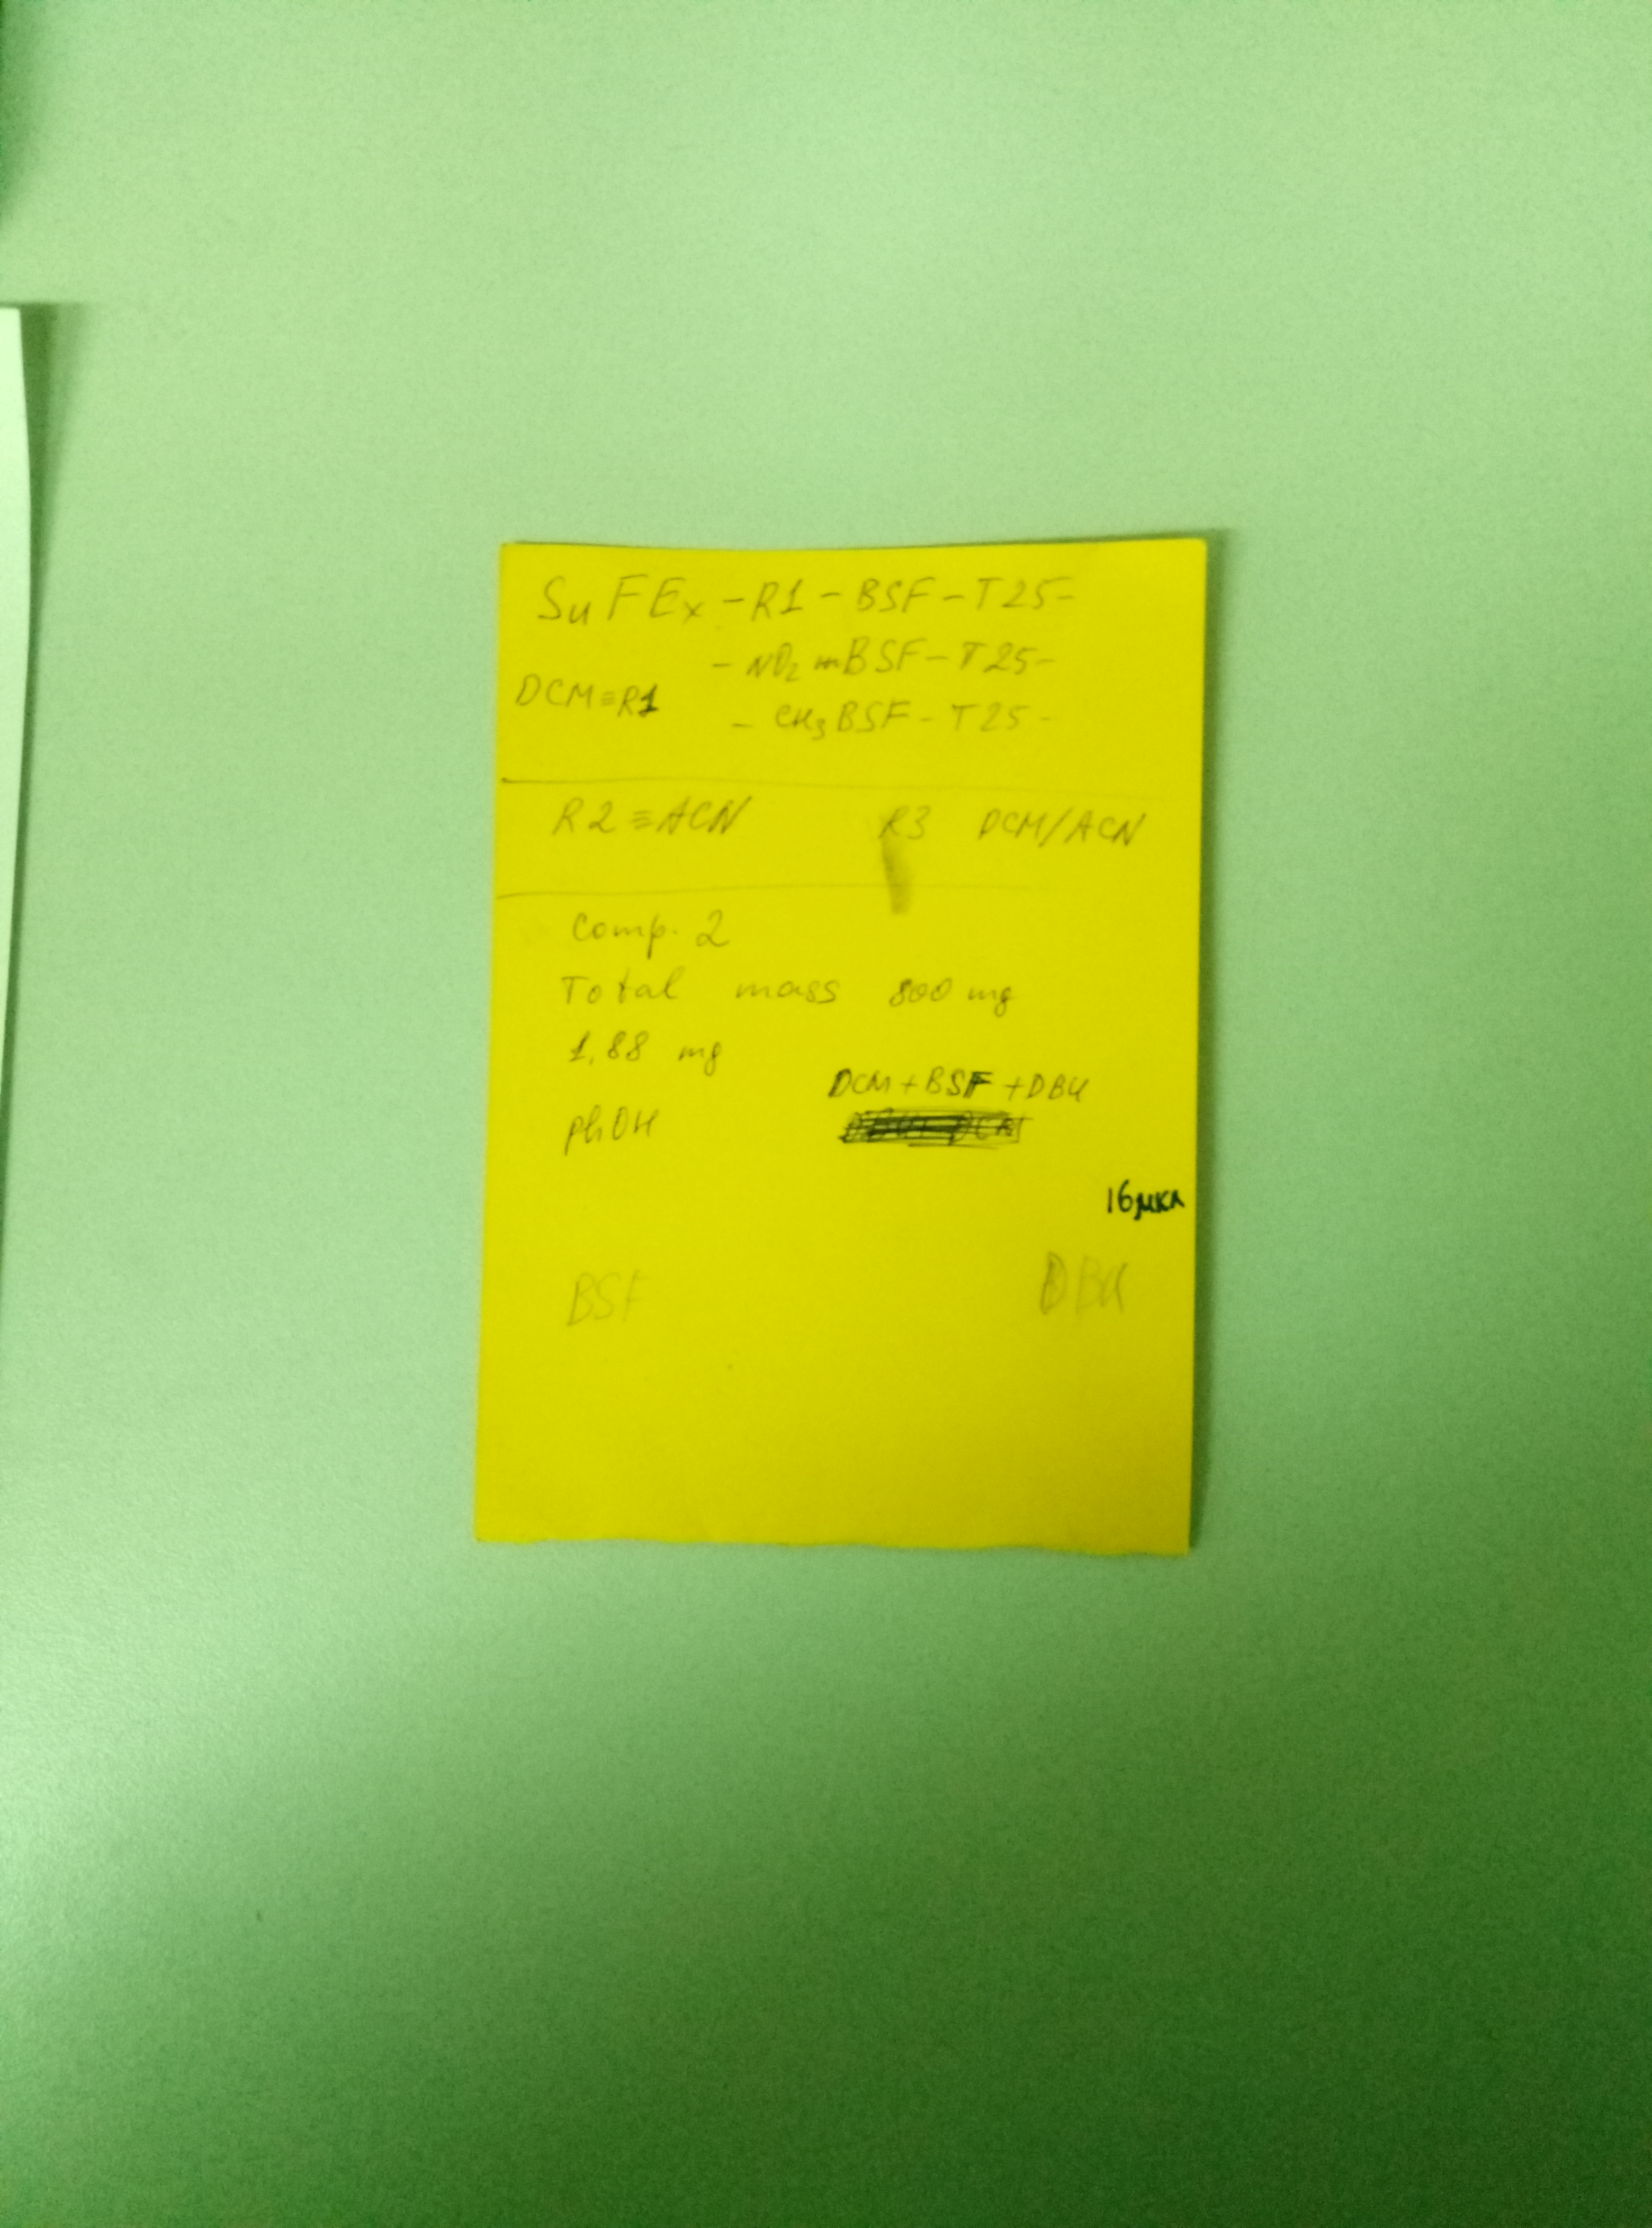 SuFEx - R1 - BSF - T25 -
- NO2 BSF - T25 -
DCM ≡ R1
- CH3 BSF - T25 -
R2 ≡ ACN R3 DCM/ACN
Comp. 2
Total mass 800 mg
1,88 mg
DCM + BSF + DBU
phOH
16 мкл
BSF DBU